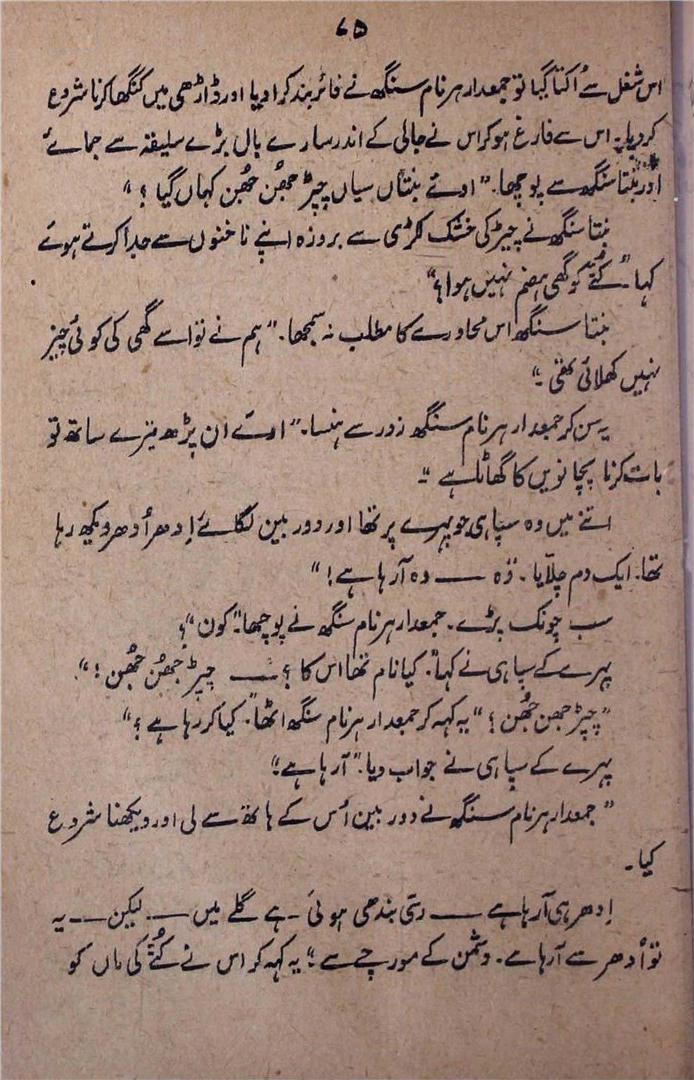 ۷۵
اس شغل سے اُکتا گیا تو جمعدار ہرنام سنگھ نے فائر بند کرا دیا اور ڈاڑھی میں کنگھا کرنا شروع
کر دیا۔ اس سے فارغ ہو کر اس نے جالی کے اندر سارے بال بڑے سلیقہ سے جمائے
اور بنتا سنگھ سے پوچھا۔ "اوئے بنتاں سیاں چپڑ جھُن جھُن کہاں گیا؟"
بنتا سنگھ نے چیڑ کی خشک لکڑی سے بروزہ اپنے ناخنوں سے جدا کرتے ہوئے
کہا۔ "کُتے کو گھی ہضم نہیں ہوا؟"
بنتا سنگھ اس محاورے کا مطلب نہ سمجھا۔ "ہم نے تو اسے گھی کی کوئی چیز
نہیں کھلائی تھی۔"
یہ سن کر جمعدار ہرنام سنگھ زور سے ہنسا۔ "اوئے ان پڑھ تیرے ساتھ تو
بات کرنا پچانویں کا گھاٹا ہے"۔
اتنے میں وہ سپاہی جو پہرے پر تھا اور دوربین لگائے اِدھر اُدھر دیکھ رہا
تھا۔ ایک دم چلّایا۔ "وُہ —— وہ آ رہا ہے!"
سب چونک پڑے۔ جمعدار ہرنام سنگھ نے پوچھا۔ "کون"؟
پہرے کے سپاہی نے کہا۔ "کیا نام تھا اس کا؟ —— چپڑ جھُن جھُن!"
"چپڑ جھن جھُن؟" یہ کہہ کر جمعدار ہرنام سنگھ اٹھا۔ "کیا کر رہا ہے؟"
پہرے کے سپاہی نے جواب دیا۔ "آ رہا ہے۔"
"جمعدار ہرنام سنگھ نے دوربین اُس کے ہاتھ سے لی اور دیکھنا شروع
کیا۔
اِدھر ہی آ رہا ہے —— رسّی بندھی ہوئی۔ ہے گلے میں —— لیکن —— یہ
تو اُدھر سے آ رہا ہے۔ دشمن کے مورچے سے۔" یہ کہہ کر اس نے کُتے کی ماں کو